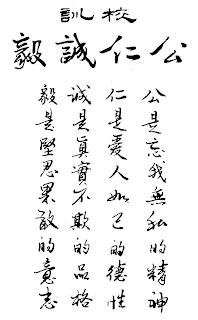 校訓
公仁誠毅
公是忘我無私的精神
仁是愛人如己的德性
誠是真實不欺的品格
毅是堅忍果敢的意志